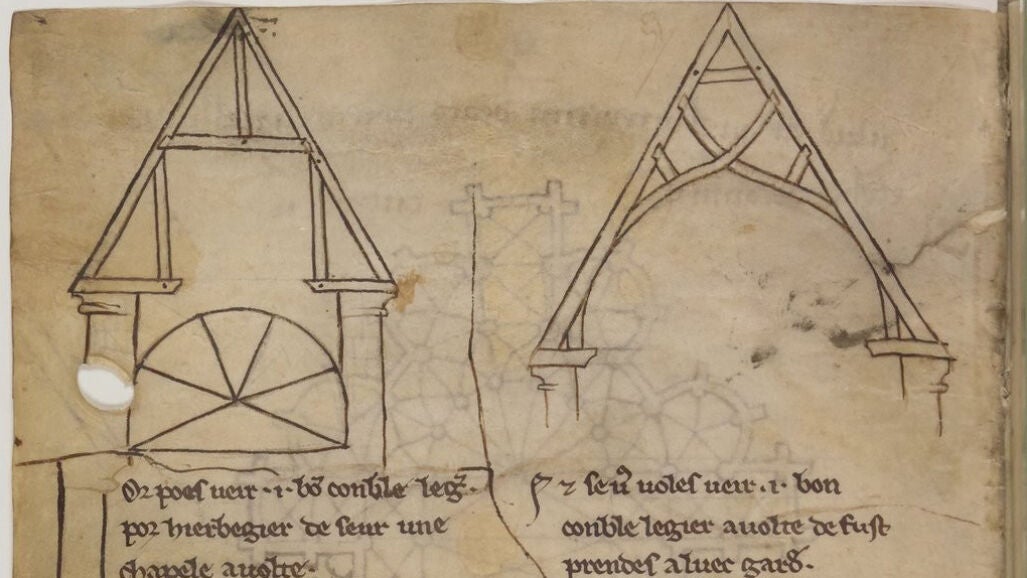 Or poes veir · i · bō conble leg̃ ·
por hierbegier de seur une
chapele a volte ·
⁊ se v̾ voles veir · i · bon
conble legier a volte de fust
prendes aluec gard̃ ·